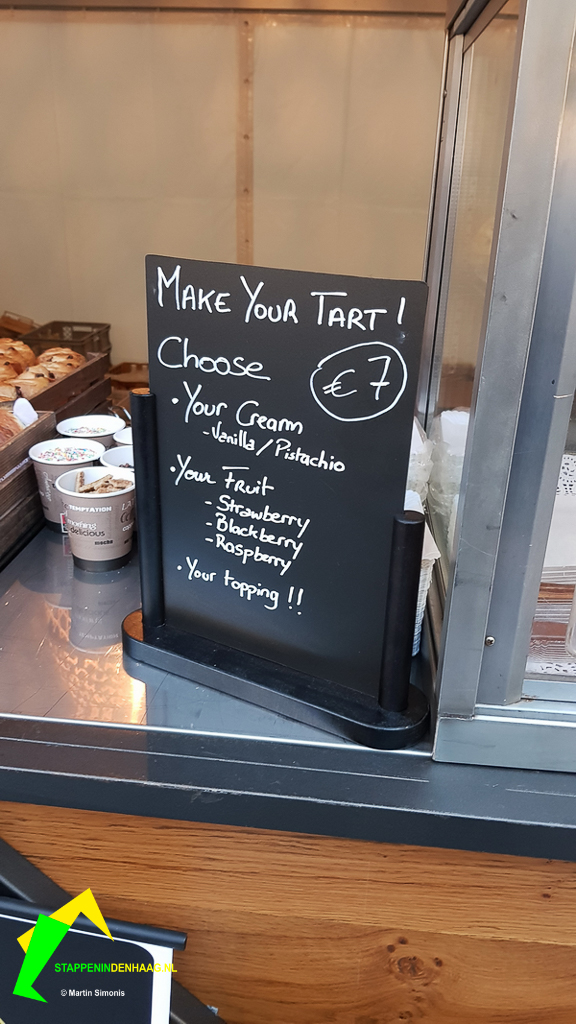 MAKE YOUR TART!
Choose
€ 7
• Your Cream
- Vanilla / Pistachio
• Your Fruit
- Strawberry
- Blackberry
- Raspberry
• Your topping !!
TEMPTATION
delicious
STAPPENINDENHAAG.NL
© Martin Simonis